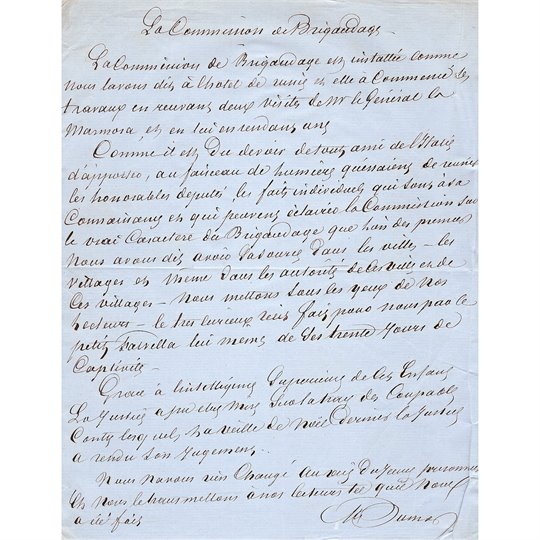 La Commission de Brigandage
La Commission de Brigandage est installée comme
nous lavons dis à l'hotel de et elle a Commencé ses
travaux en recevant deux visites de Mr le Général la
Marmora et en lui en rendant une
Comme il est du devoir de tout ami de l'Italie
d'apporter, au faisceau de lumière de reunir
les honorables deputés, les faits individuels qui sont à sa
Connaissance et qui peuvent éclairer la Commission sur
le vrai Caractère du Brigandage que des premiers
nous avons dis avoir dans les villes – les
villages et même dans les autorités de Ces villes et de
Ces villages – nous mettons sous les yeux de nos
lecteurs – le tres curieux recit fait pour nous par le
petit lui meme de ses trente jours de
Captivité –
Grace à l'intelligence Superieure de Cet Enfant
La Justice a pu mettre sur la trace des Coupables
Contre lesquels la veille de noel dernier la Justice
a rendu son Jugement..
Nous navons rien Changé au recit du jeune personnage
et nous le transmettons à nos lecteurs tel qu'il nous
a été fait
Dumas